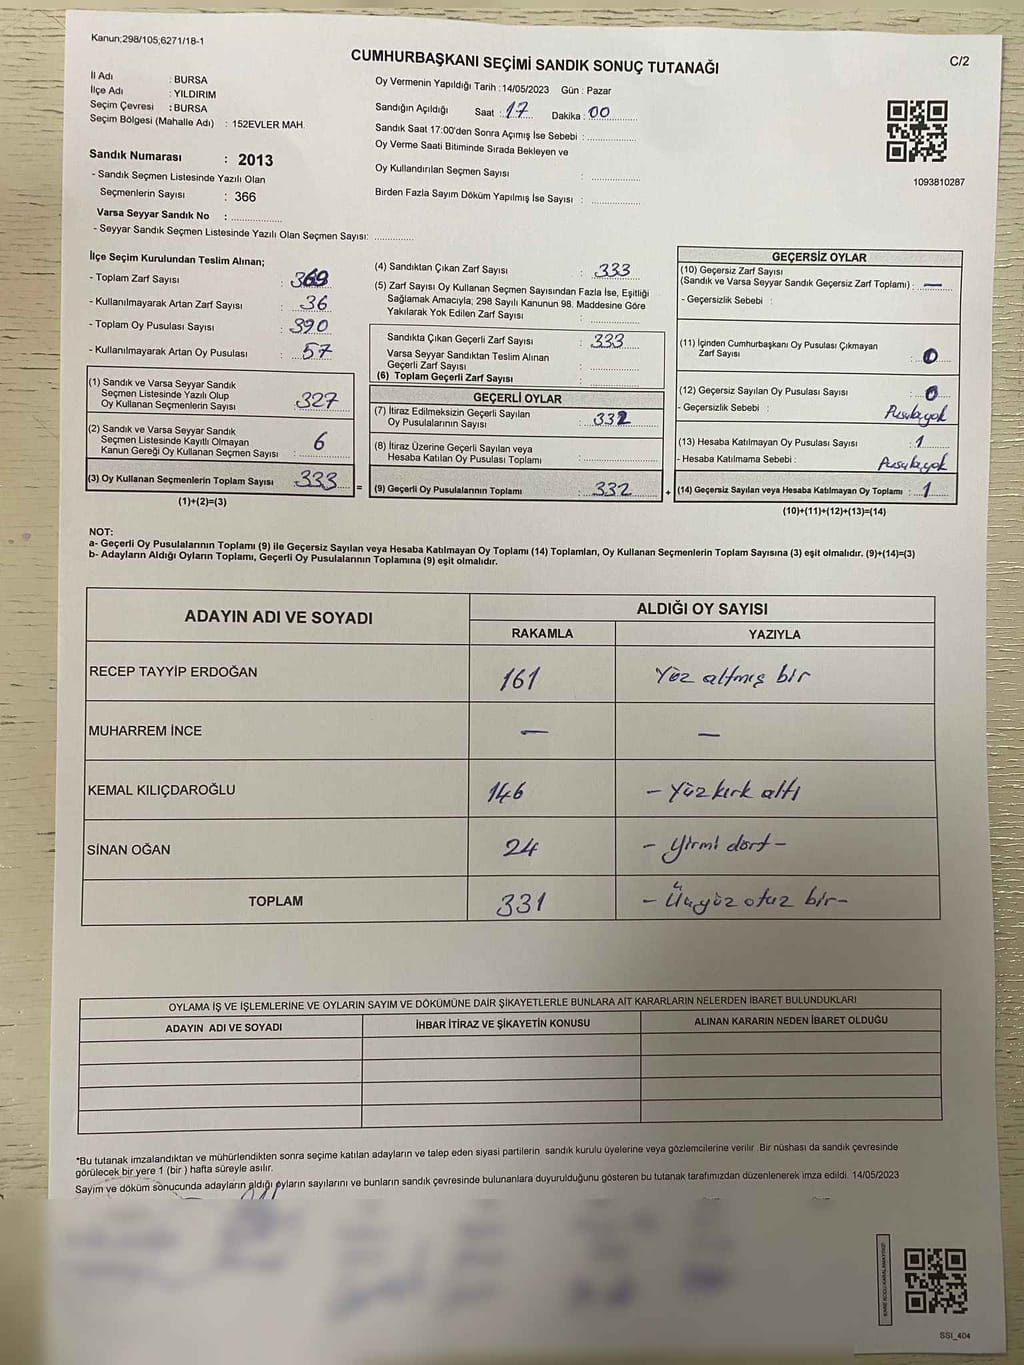 Kanun;298/105;6271/18-1
CUMHURBAŞKANI SEÇİMİ SANDIK SONUÇ TUTANAĞI
C/2
İl Adı : BURSA
İlçe Adı : YILDIRIM
Seçim Çevresi : BURSA
Seçim Bölgesi (Mahalle Adı) : 152EVLER MAH.
Sandık Numarası : 2013
- Sandık Seçmen Listesinde Yazılı Olan
Seçmenlerin Sayısı : 366
Varsa Seyyar Sandık No : ..............
- Seyyar Sandık Seçmen Listesinde Yazılı Olan Seçmen Sayısı: ............
Oy Vermenin Yapıldığı Tarih :14/05/2023 Gün : Pazar
Sandığın Açıldığı Saat : 17 Dakika : 00
Sandık Saat 17:00'den Sonra Açımış İse Sebebi : ..............
Oy Verme Saati Bitiminde Sırada Bekleyen ve
Oy Kullandırılan Seçmen Sayısı : ..............
Birden Fazla Sayım Döküm Yapılmış İse Sayısı : ..............
1093810287
İlçe Seçim Kurulundan Teslim Alınan;
- Toplam Zarf Sayısı : 369
- Kullanılmayarak Artan Zarf Sayısı : 36
- Toplam Oy Pusulası Sayısı : 390
- Kullanılmayarak Artan Oy Pusulası : 57
(1) Sandık ve Varsa Seyyar Sandık
Seçmen Listesinde Yazılı Olup
Oy Kullanan Seçmenlerin Sayısı : 327
(2) Sandık ve Varsa Seyyar Sandık
Seçmen Listesinde Kayıtlı Olmayan
Kanun Gereği Oy Kullanan Seçmen Sayısı : 6
(3) Oy Kullanan Seçmenlerin Toplam Sayısı : 333 =
(1)+(2)=(3)
(4) Sandıktan Çıkan Zarf Sayısı : 333
(5) Zarf Sayısı Oy Kullanan Seçmen Sayısından Fazla İse, Eşitliği
Sağlamak Amacıyla; 298 Sayılı Kanunun 98. Maddesine Göre
Yakılarak Yok Edilen Zarf Sayısı : ..............
Sandıkta Çıkan Geçerli Zarf Sayısı : 333
Varsa Seyyar Sandıktan Teslim Alınan
Geçerli Zarf Sayısı : ..............
(6) Toplam Geçerli Zarf Sayısı : ..............
GEÇERLİ OYLAR
(7) İtiraz Edilmeksizin Geçerli Sayılan
Oy Pusulalarının Sayısı : 332
(8) İtiraz Üzerine Geçerli Sayılan veya
Hesaba Katılan Oy Pusulası Toplamı : ..............
(9) Geçerli Oy Pusulalarının Toplamı : 332 +
GEÇERSİZ OYLAR
(10) Geçersiz Zarf Sayısı
(Sandık ve Varsa Seyyar Sandık Geçersiz Zarf Toplamı) : —
- Geçersizlik Sebebi :
(11) İçinden Cumhurbaşkanı Oy Pusulası Çıkmayan
Zarf Sayısı : 0
(12) Geçersiz Sayılan Oy Pusulası Sayısı : 0
- Geçersizlik Sebebi : Pusula yok
(13) Hesaba Katılmayan Oy Pusulası Sayısı : 1
- Hesaba Katılmama Sebebi : Pusula yok
(14) Geçersiz Sayılan veya Hesaba Katılmayan Oy Toplamı : 1
(10)+(11)+(12)+(13)=(14)
NOT:
a- Geçerli Oy Pusulalarının Toplamı (9) ile Geçersiz Sayılan veya Hesaba Katılmayan Oy Toplamı (14) Toplamları, Oy Kullanan Seçmenlerin Toplam Sayısına (3) eşit olmalıdır. (9)+(14)=(3)
b- Adayların Aldığı Oyların Toplamı, Geçerli Oy Pusulalarının Toplamına (9) eşit olmalıdır.
ADAYIN ADI VE SOYADI
ALDIĞI OY SAYISI
RAKAMLA YAZIYLA
RECEP TAYYİP ERDOĞAN 161 Yüz altmış bir
MUHARREM İNCE — —
KEMAL KILIÇDAROĞLU 146 - Yüz kırk altı
SİNAN OĞAN 24 - yirmi dört -
TOPLAM 331 - Üçyüz otuz bir -
OYLAMA İŞ VE İŞLEMLERİNE VE OYLARIN SAYIM VE DÖKÜMÜNE DAİR ŞİKAYETLERLE BUNLARA AİT KARARLARIN NELERDEN İBARET BULUNDUKLARI
ADAYIN ADI VE SOYADI İHBAR İTİRAZ VE ŞİKAYETİN KONUSU ALINAN KARARIN NEDEN İBARET OLDUĞU
*Bu tutanak imzalandıktan ve mühürlendikten sonra seçime katılan adayların ve talep eden siyasi partilerin sandık kurulu üyelerine veya gözlemcilerine verilir. Bir nüshası da sandık çevresinde
görülecek bir yere 1 (bir ) hafta süreyle asılır.
Sayım ve döküm sonucunda adayların aldığı oyların sayılarını ve bunların sandık çevresinde bulunanlara duyurulduğunu gösteren bu tutanak tarafımızdan düzenlenerek imza edildi. 14/05/2023
SSI_404